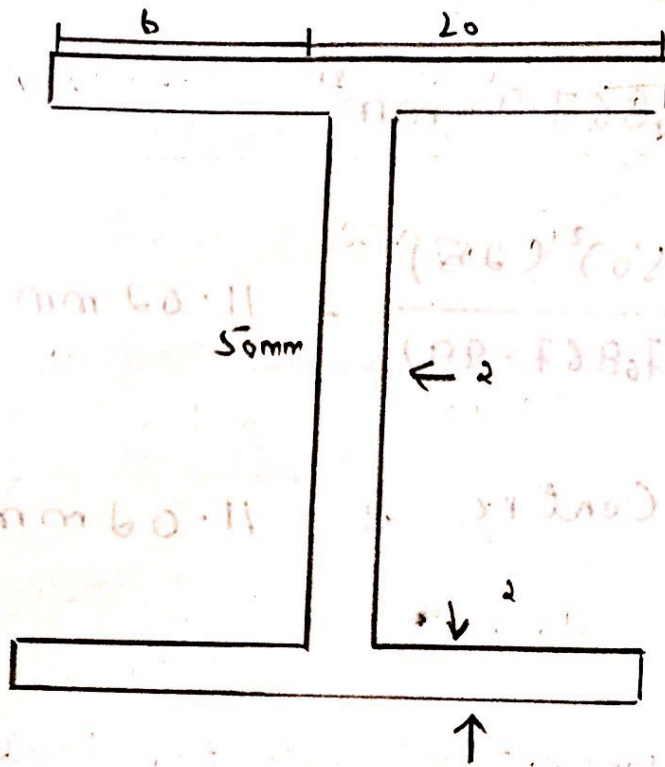 6 20
50mm
← 2
2